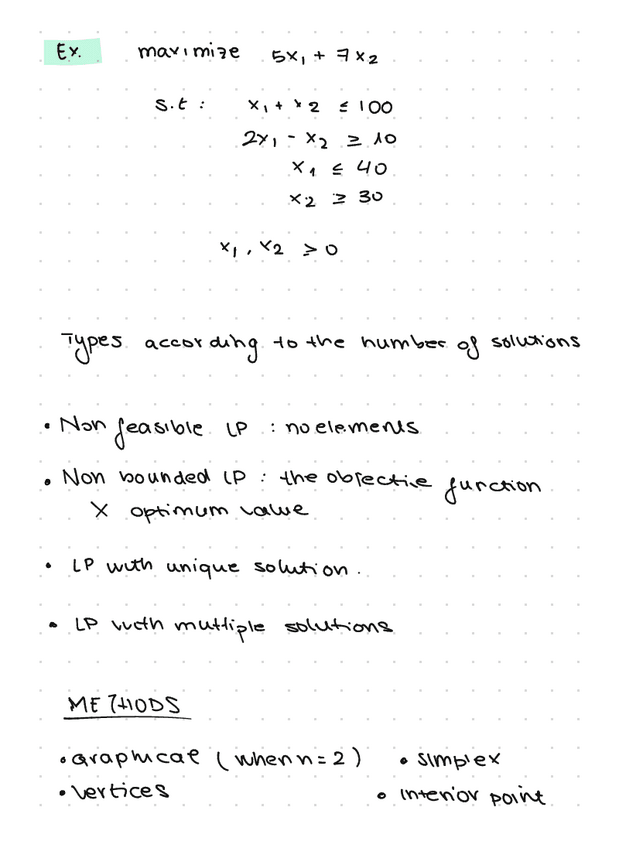 Ex. maximize 5x₁ + 7x₂
s.t : x₁ + x₂ ≤ 100
2x₁ - x₂ ≥ 10
x₁ ≤ 40
x₂ ≥ 30
x₁, x₂ ≥ 0
Types according to the number of solutions
• Non feasible LP : no elements
• Non bounded LP : the objective function
X optimum value
• LP with unique solution.
• LP with multiple solutions
METHODS
• Graphical (when n = 2) • simplex
• Vertices • interior point